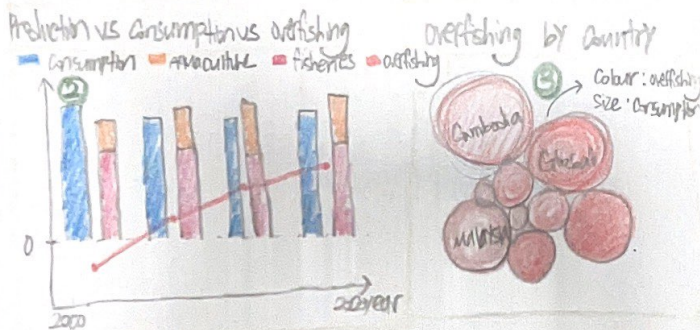 Production vs Consumption vs overfishing
Consumption aquaculture fisheries overfishing
2
0
2000
year
Overfishing by Country
3
Colour: overfishing
Size: consumption
Cambodia
Malaysia